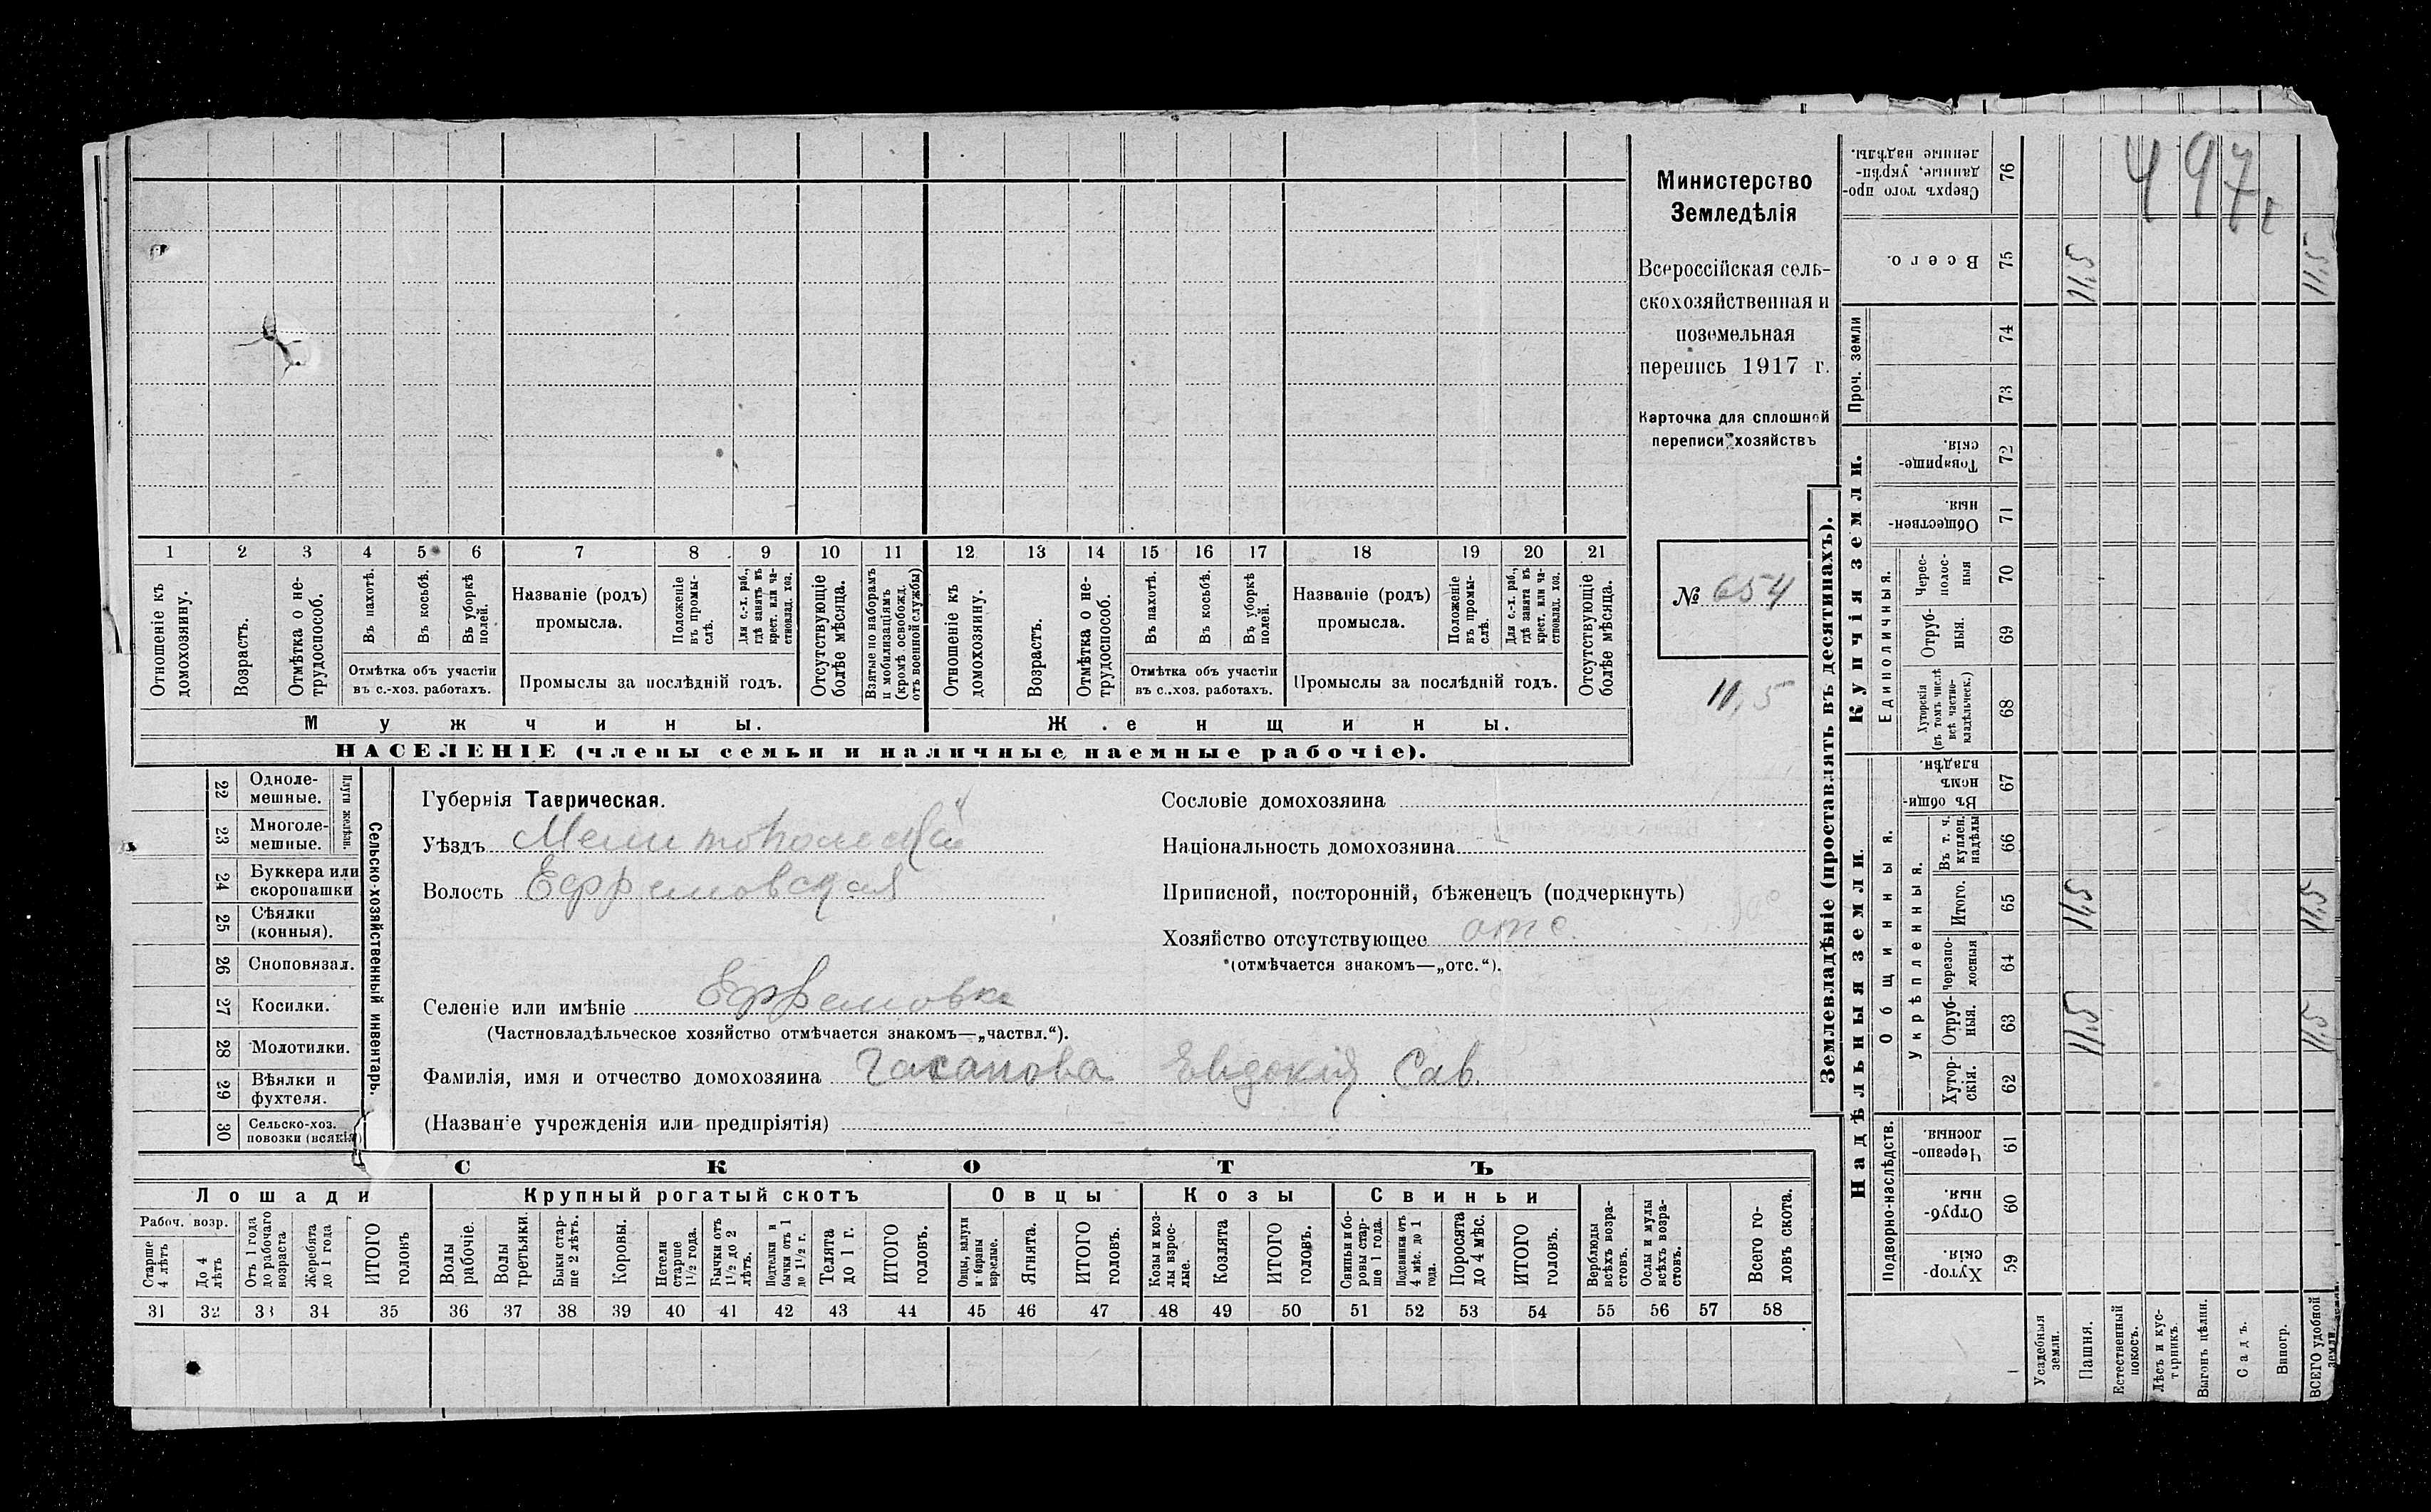 Министерство
Земледѣлія
Всероссійская сель-
скохозяйственная и
поземельная
перепись 1917 г.
Карточка для сплошной
переписи хозяйствъ
№ 654
11,5
497
1 2 3 4 5 6 7 8 9 10 11 12 13 14 15 16 17 18 19 20 21
Отношеніе къ домохозяину.
Возрастъ.
Отмѣтка о не-трудоспособ.
Въ пахотѣ.
Въ косьбѣ.
Въ уборкѣ полей.
Отмѣтка объ участіи
въ с.-хоз. работахъ.
Названіе (родъ)
промысла.
Положеніе въ промы-слѣ.
Для с.-х. раб., гдѣ занятъ въ крест. или ча-стновлад. хоз.
Промыслы за послѣдній годъ.
Отсутствующіе болѣе мѣсяца.
Взятые по наборамъ и мобилизаціямъ (кромѣ освобожд. отъ военной службы)
Отношеніе къ домохозяину.
Возрастъ.
Отмѣтка о не-трудоспособ.
Въ пахотѣ.
Въ косьбѣ.
Въ уборкѣ полей.
Отмѣтка объ участіи
въ с..хоз. работахъ.
Названіе (родъ)
промысла.
Положеніе въ промы-слѣ.
Для с.-х. раб., гдѣ занята въ крест. или ча-стновлад. хоз.
Промыслы за послѣдній годъ.
Отсутствующіе болѣе мѣсяца.
Мужчины.
Женщины.
НАСЕЛЕНІЕ (члены семьи и наличные наемные рабочіе).
22 Одноле-мешные.
23 Многоле-мешные.
Плуги желѣзн.
24 Буккера или скоропашки
25 Сѣялки (конныя).
26 Сноповязал.
27 Косилки.
28 Молотилки.
29 Вѣялки и фухтеля.
30 Сельско-хоз. повозки (всякія)
Сельско-хозяйственный инвентарь.
Губернія Таврическая.
Уѣздъ Мелитопольский
Волость Ефремовская
Селеніе или имѣніе Ефремовка
(Частновладѣльческое хозяйство отмѣчается знакомъ—„частвл.“).
Фамилія, имя и отчество домохозяина Гасанова Евдокия Сав.
(Названіе учрежденія или предпріятія)
Сословіе домохозяина
Національность домохозяина
Приписной, посторонній, бѣженецъ (подчеркнуть)
Хозяйство отсутствующее отс.
(отмѣчается знакомъ—„отс.“).
СКОТЪ
Лошади
Рабоч. возр.
Старше 4 лѣтъ
До 4 лѣтъ
Отъ 1 года до рабочаго возраста
Жеребята до 1 года
ИТОГО головъ
Крупный рогатый скотъ
Волы рабочіе.
Волы третьяки.
Быки стар-ше 2 лѣтъ.
Коровы.
Нетели старше 1 1/2 года.
Бычки отъ 1 1/2 до 2 лѣтъ.
Подтелки и бычки отъ 1 до 1 1/2 г.
Телята до 1 г.
ИТОГО головъ.
Овцы
Овцы, валухи и бараны взрослые.
Ягнята.
ИТОГО головъ.
Козы
Козы и коз-лы взрос-лые.
Козлята
ИТОГО головъ.
Свиньи
Свиньи и бо-ровы стар-ше 1 года.
Подсвинки отъ 4 мѣс. до 1 года.
Поросята до 4 мѣс.
ИТОГО головъ.
Верблюды всѣхъ возра-стовъ.
Ослы и мулы всѣхъ возра-стовъ.
Всего го-ловъ скота.
31 32 33 34 35 36 37 38 39 40 41 42 43 44 45 46 47 48 49 50 51 52 53 54 55 56 57 58
Землевладѣніе (проставлять въ десятинахъ).
Сверхъ того про-данные, укрѣп-ленные надѣлы. 76
Всего. 75 11,5 11,5
Проч. земли
74
73
Купчія земли.
Товарище-скія. 72
Обществен-ныя. 71
Единоличныя.
Черес-полос-ныя 70
Отруб-ныя. 69
Хуторскія (въ томъ числѣ всѣ частно-владѣльческ.) 68
Надѣльныя земли.
Общинныя.
Въ общи-номъ владѣн. 67
Укрѣпленныя.
Въ т. ч. куплен. надѣлы 66
Итого. 65 11,5 11,5
Черезпо-лосныя 64
Отруб-ныя. 63 11,5 11,5
Хутор-скія. 62
Подворно-наслѣдств.
Черезпо-лосныя. 61
Отруб-ныя. 60
Хутор-скія. 59
Усадебныя земли.
Пашня.
Естественный покосъ.
Лѣсъ и кус-тарникъ.
Выгонъ цѣлин.
Садъ.
Виногр.
ВСЕГО удобной земли.